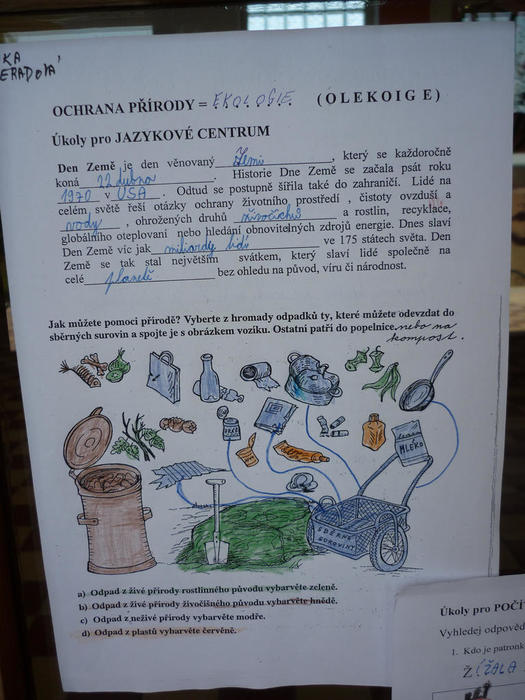 KA
ERADOVÁ
OCHRANA PŘÍRODY = EKOLOGIE (OLEKOIGE)
Úkoly pro JAZYKOVÉ CENTRUM
Den Země je den věnovaný Zemi, který se každoročně
koná 22. dubna. Historie Dne Země se začala psát roku
1970 v USA. Odtud se postupně šířila také do zahraničí. Lidé na
celém světě řeší otázky ochrany životního prostředí, čistoty ovzduší a
vody, ohrožených druhů živočichů a rostlin, recyklace,
globálního oteplovaní nebo hledání obnovitelných zdrojů energie. Dnes slaví
Den Země víc jak miliardy lidí ve 175 státech světa. Den
Země se tak stal největším svátkem, který slaví lidé společně na
celé planetě bez ohledu na původ, víru či národnost.
Jak můžete pomoci přírodě? Vyberte z hromady odpadků ty, které můžete odevzdat do
sběrných surovin a spojte je s obrázkem vozíku. Ostatní patří do popelnice nebo na
kompost.
MLÉKO
SBĚRNÉ
SUROVINY
a) Odpad z živé přírody rostlinného původu vybarvěte zeleně.
b) Odpad z živé přírody živočišného původu vybarvěte hnědě.
c) Odpad z neživé přírody vybarvěte modře.
d) Odpad z plastů vybarvěte červeně.
Úkoly pro POČÍ
Vyhledej odpověd
1. Kdo je patronk
ŽÍŽALA